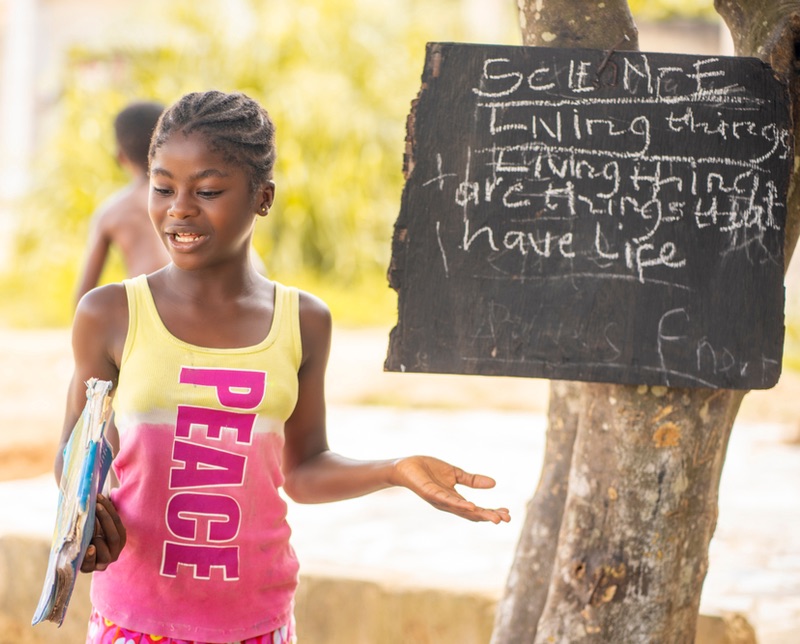 SCIENCE
Living things
Living things
are things that
have Life
PEACE